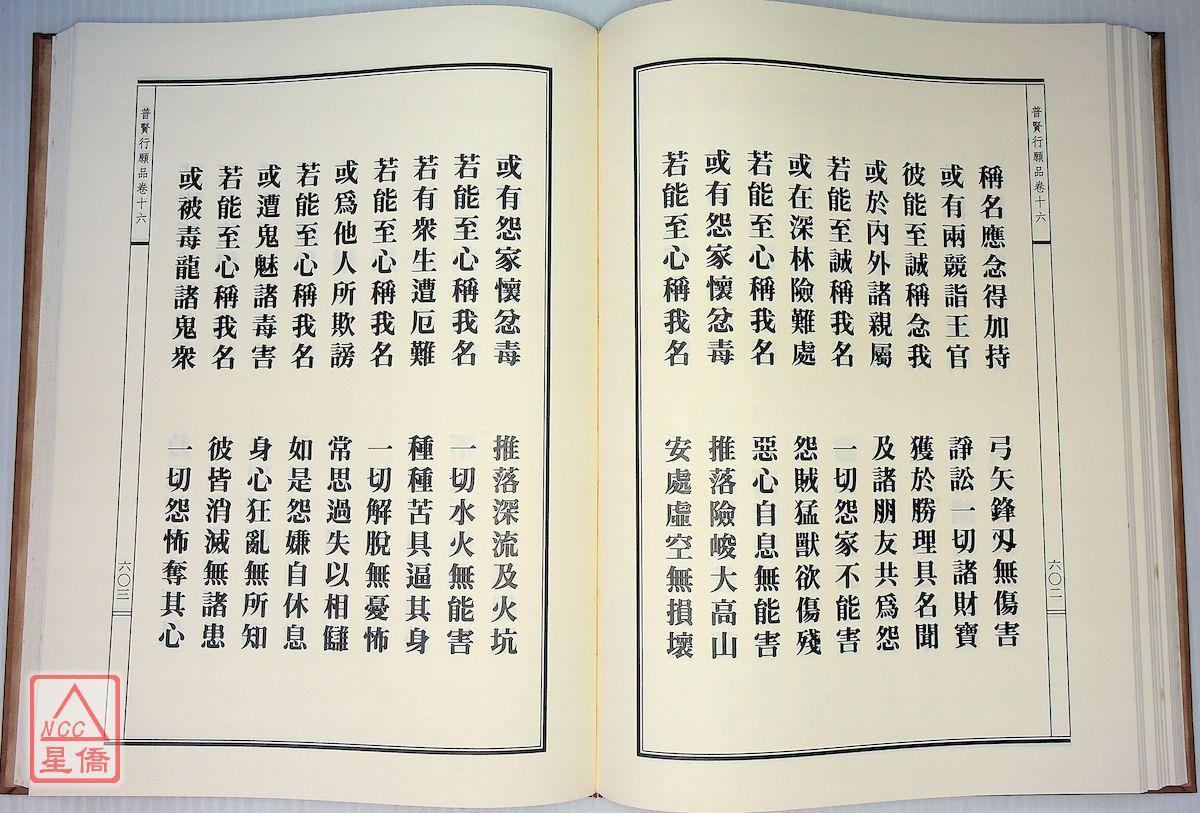 普賢行願品卷十六
稱名應念得加持　弓矢鋒刃無傷害
或有兩競詣王官　諍訟一切諸財寶
彼能至誠稱念我　獲於勝理具名聞
或於內外諸親屬　及諸朋友共爲怨
若能至誠稱我名　一切怨家不能害
或在深林險難處　怨賊猛獸欲傷殘
若能至心稱我名　惡心自息無能害
或有怨家懷忿毒　推落險峻大高山
若能至心稱我名　安處虛空無損壞
六〇二
或有怨家懷忿毒　推落深流及火坑
若能至心稱我名　一切水火無能害
若有衆生遭厄難　種種苦具逼其身
若能至心稱我名　一切解脫無憂怖
或爲他人所欺謗　常思過失以相讎
若能至心稱我名　如是怨嫌自休息
或遭鬼魅諸毒害　身心狂亂無所知
若能至心稱我名　彼皆消滅無諸患
或被毒龍諸鬼衆　一切怨怖奪其心
普賢行願品卷十六
六〇三
NCC
星僑